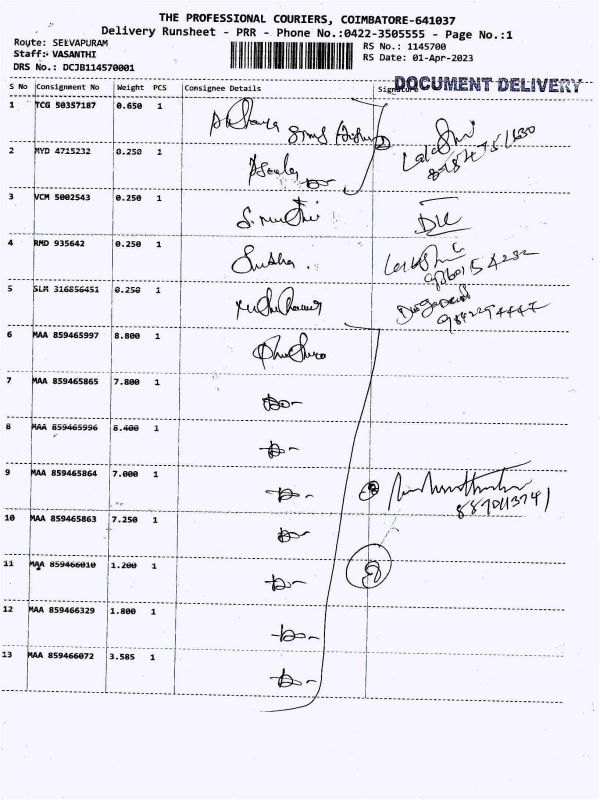 THE PROFESSIONAL COURIERS, COIMBATORE-641037
Delivery Runsheet - PRR - Phone No.:0422-3505555 - Page No.:1
Route: SELVAPURAM
Staff: VASANTHI
DRS No.: DCJB114570001
RS No.: 1145700
RS Date: 01-Apr-2023
DOCUMENT DELIVERY
S No Consignment No Weight PCS Consignee Details Signature
1 TCG 50357187 0.650 1
2 MYD 4715232 0.250 1
3 VCM 5002543 0.250 1
4 RMD 935642 0.250 1 Susha.
5 SLM 316856451 0.250 1
6 MAA 859465997 8.800 1
7 MAA 859465865 7.800 1 -Do-
8 MAA 859465996 8.400 1 -Do-
9 MAA 859465864 7.000 1 -Do-
10 MAA 859465863 7.250 1 -Do-
11 MAA 859466010 1.200 1 -Do-
12 MAA 859466329 1.800 1 -Do-
13 MAA 859466072 3.585 1 -Do-